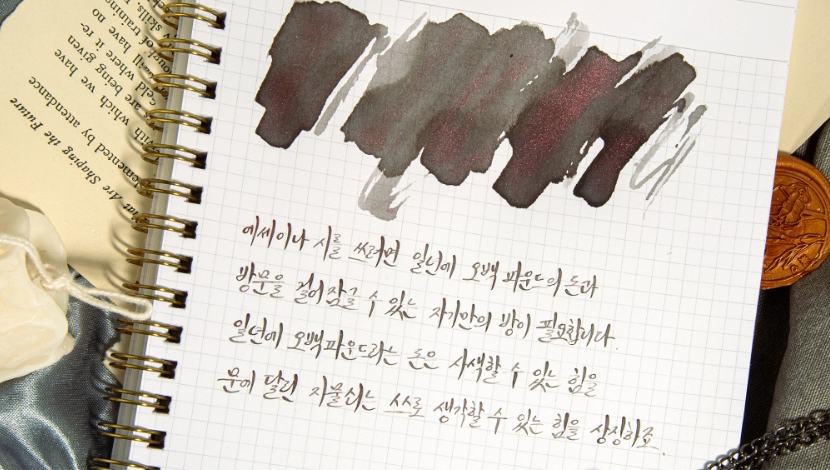 Are Shaping the Future
by attendance
with which we have
are being given
where it re-
have no
of training
skills.
에세이나 시를 쓰려면 일년에 오백파운드의 돈과
방문을 걸어잠글 수 있는 자기만의 방이 필요합니다.
일년에 오백파운드라는 돈은 사색할 수 있는 힘을
문에 달린 자물쇠는 스스로 생각할 수 있는 힘을 상징하죠.